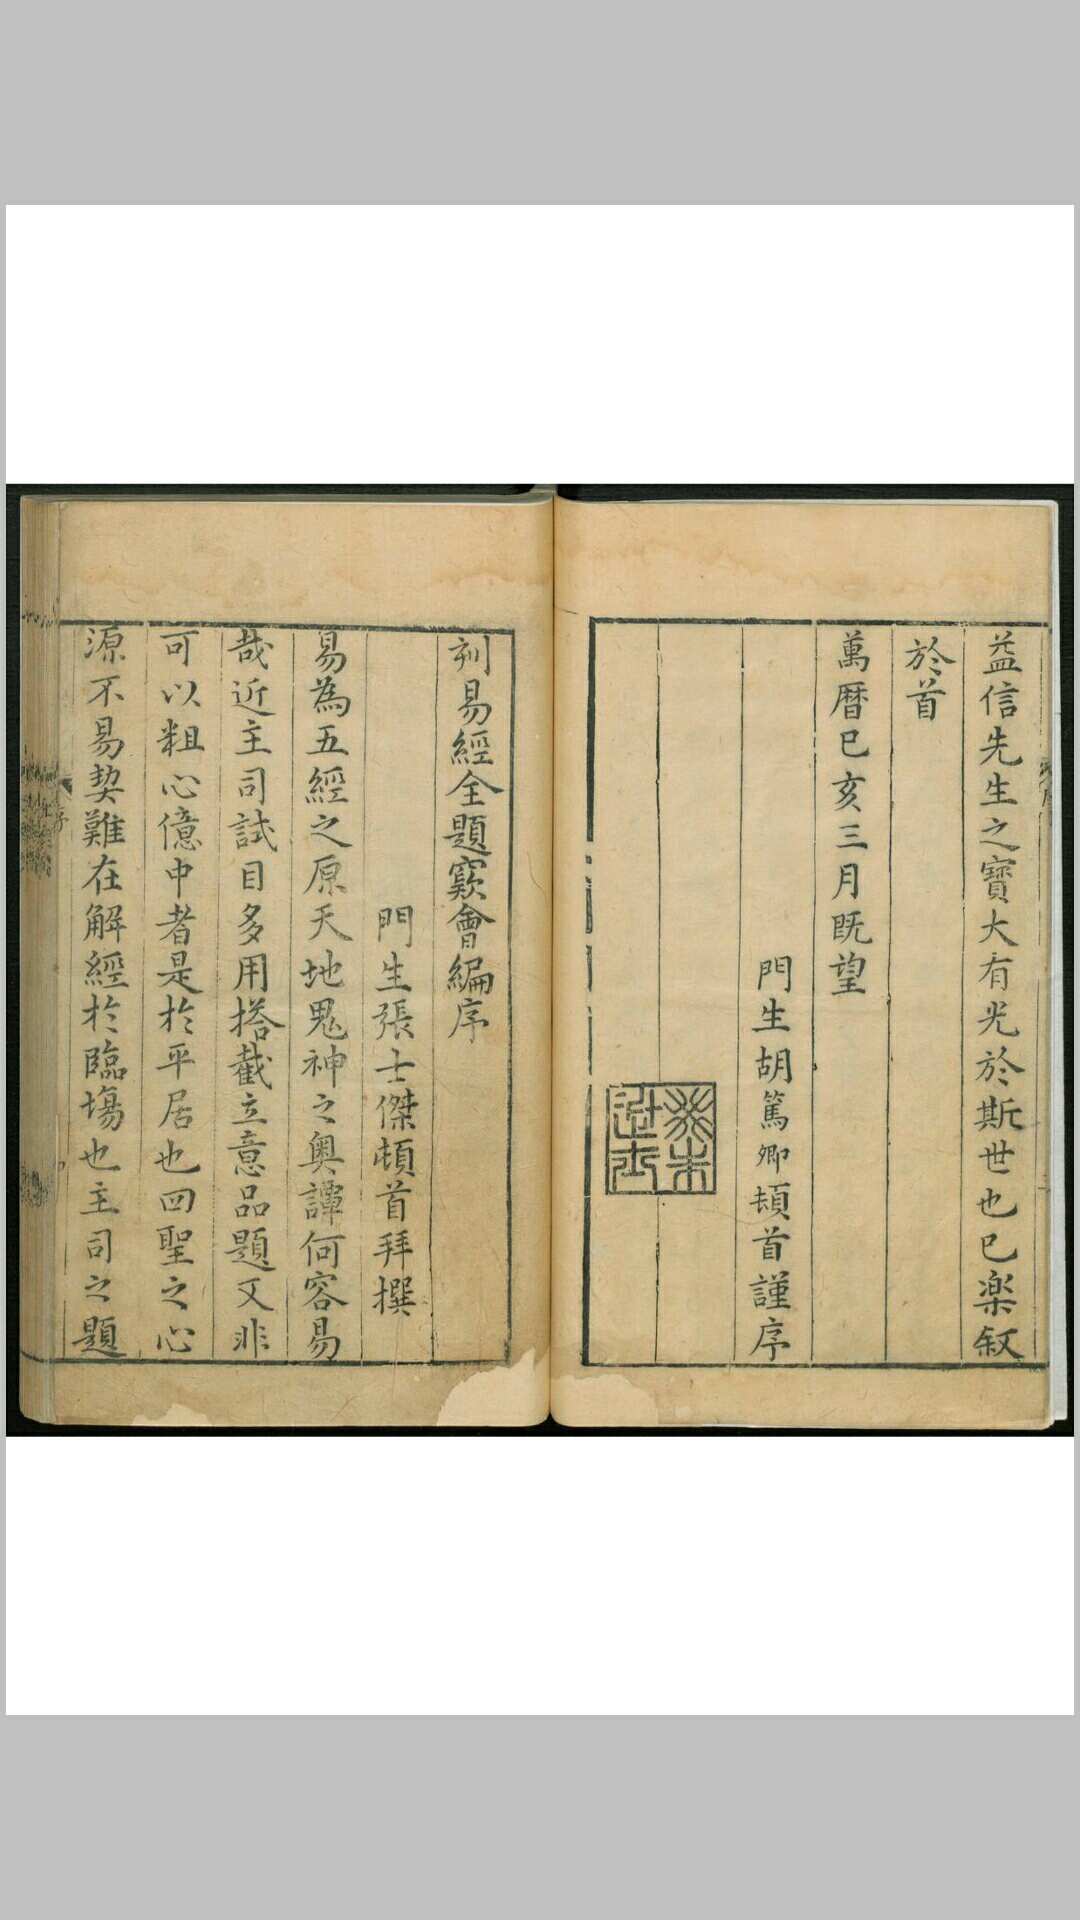 益信先生之寳大有光於斯世也已楽叙
於首
萬曆己亥三月既望
門生胡篤卿頓首謹序
癸未進士
刻易經全題窽會編序
門生張士傑頓首拜撰
易為五經之原天地鬼神之奥譚何容易
哉近主司試目多用搭截立意品題又非
可以粗心億中者是於平居也四聖之心
源不易契難在解經於臨塲也主司之題
序